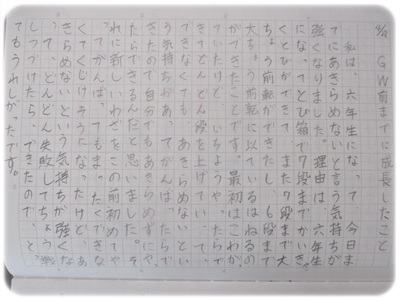 GW前までに成長したこと
私は、六年生になって今日ま
でにあきらめないと言う気持ちが
強くなりました。理由は、六年生
になってとび箱で7段までかいき
ゃくとびができて、また7段まで大
ちょう前転ができたし、6段まで
大ちょう前転に以ているはねるの
ができたことです。最初はこわが
きてどんどん段を上げていって、
できなくても、あきらめないとい
う気持ちがあってがんばってで
きたので自分でもあきらめずにや
ったらできるんだと思いました。そ
れに新しいわざをこの前初めてや
ってがんばってもまったくできな
くてくじけそうになったけど、あ
きらめないという気持ちが強くな
って、どんどん失敗してちょう戦
しつづけたら、できたので、と
てもうれしかったです。